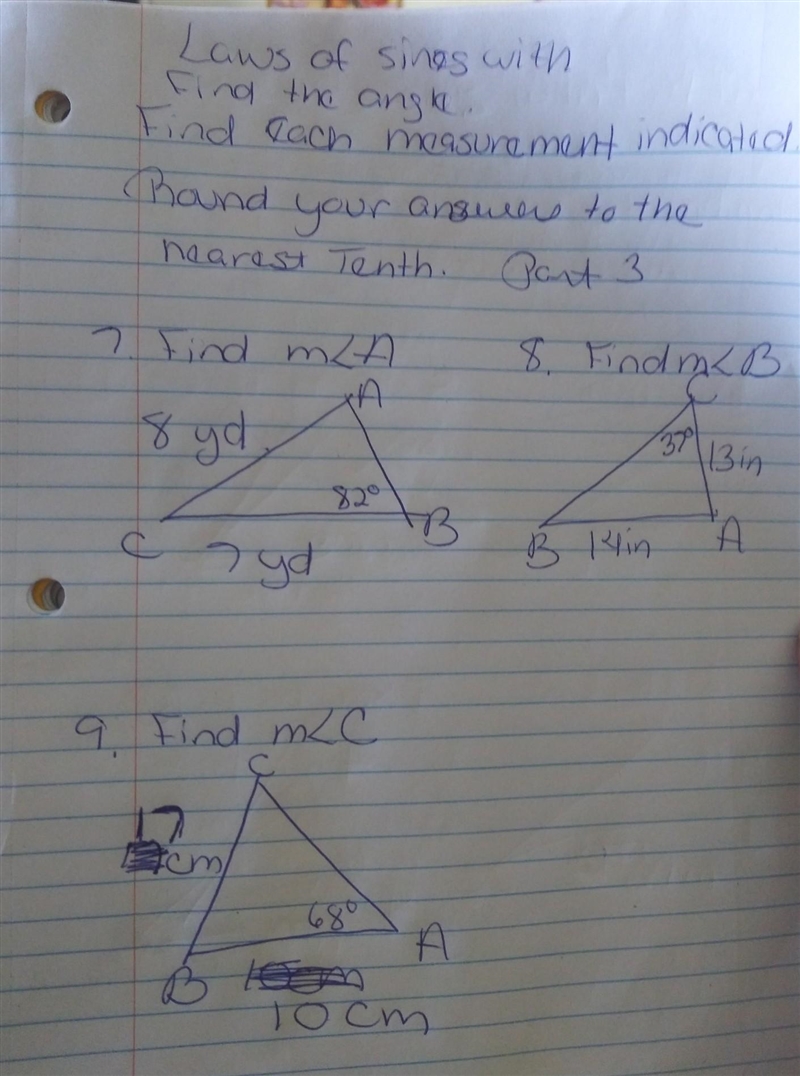 Laws of sines with
Find the angle.
Find each measurement indicated.
Round your answers to the
nearest Tenth. Part 3
7. Find m<A
8. Find m<B
A
8 yd.
82°
C
B
7 yd
C
37°
13in
B
14in
A
9. Find m<C
C
17
cm
68°
A
B
10 cm